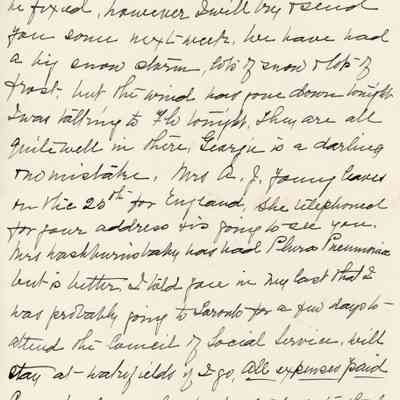 be fixed, however I will try & send
you some next week. We have had
a big snow storm, lots of snow & lots of
frost. but the wind has gone down tonight
I was talking to Flo tonight, they are all
quite well in there, Georgie is a darling
& no mistake, Mrs A. J. Young leaves
on the 25th for England, she telephoned
for your address & is going to see you.
Mrs Washburn's baby has had Plura Pneumonia
but is better. I told you in my last that I
was probably going to Toronto for a few days to
attend the Council of Social Service, will
stay at if I go, All expenses paid